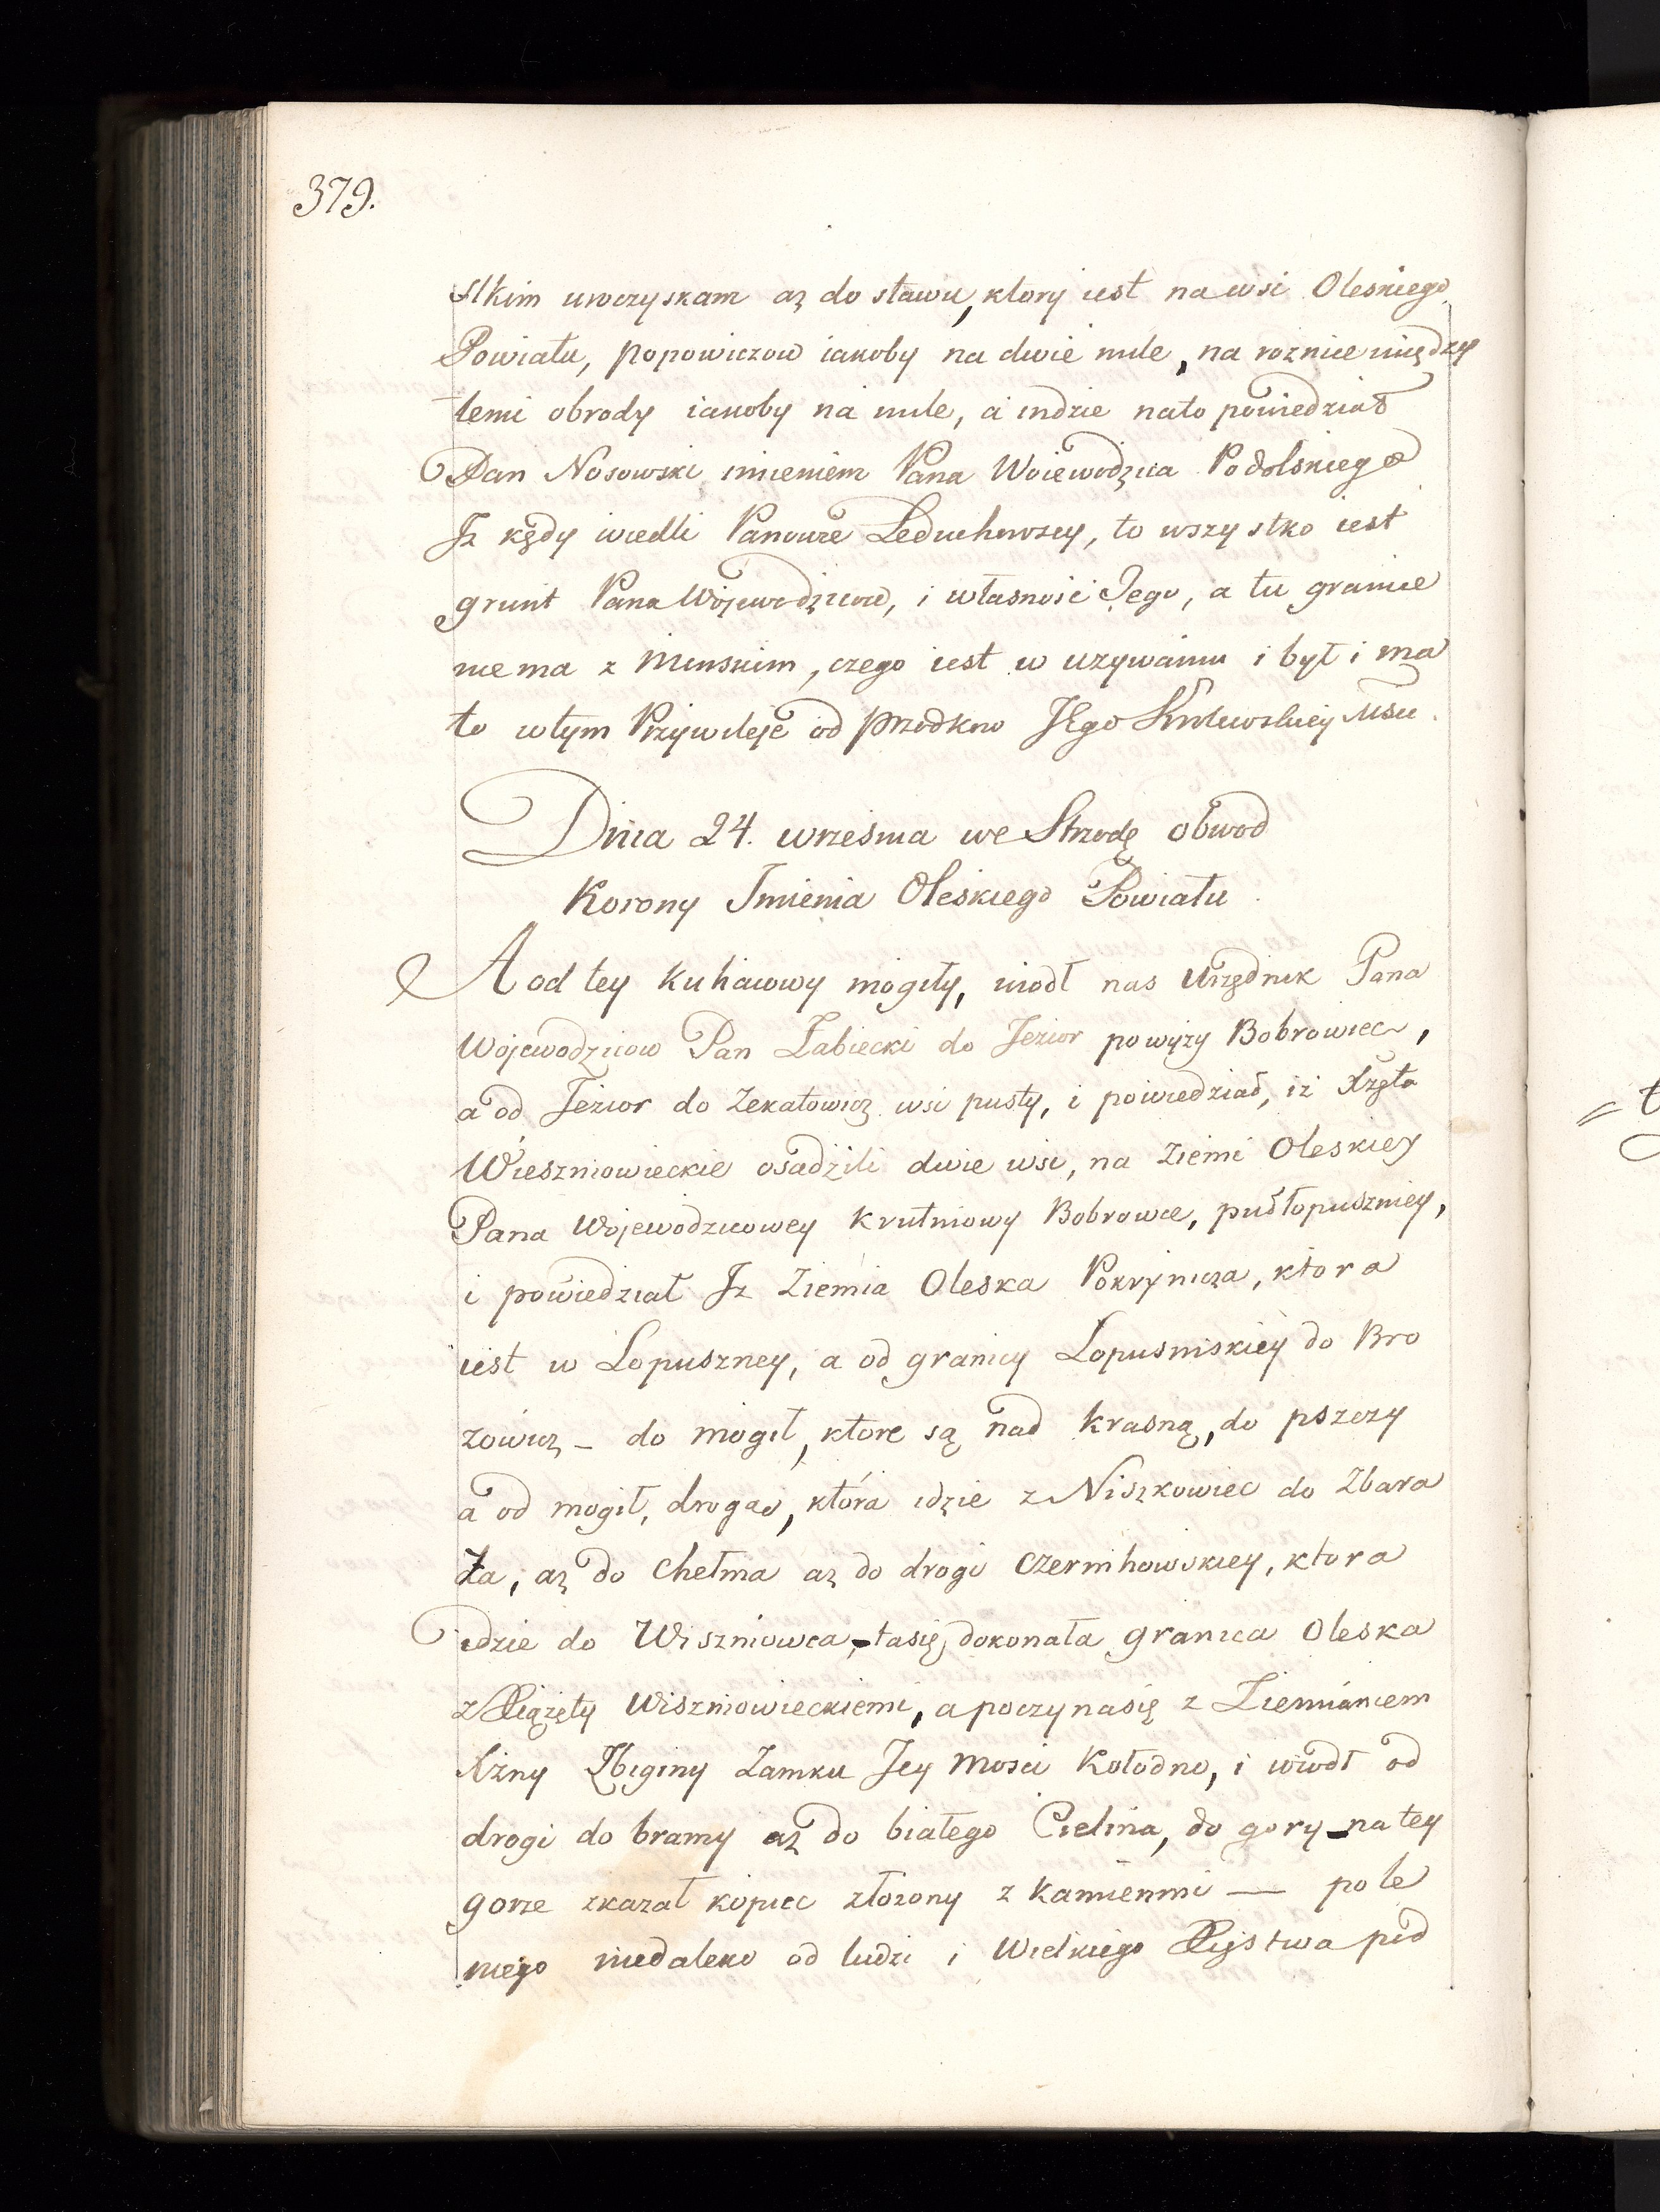 379.
stkim uroczyskam aż do stawu, ktory iest na wsi Oleskiego
Powiatu, popowiczow iakoby na dwie mile, na roznice między
temi obrody iakoby na mile, a indzie nato powiedział
Pan Nosowski imieniem Pana Woiewodzica Podolskiego
Jz kędy wiedli Panowie Leduchowscy, to wszystko iest
grunt Pana Wojewodzicow, i własność Jego, a tu granice
niema z Minskim, czego iest w używaniu i był i ma
to wtym Przywileje od przodkow JEgo Krolewskiey Mści.
Dnia 24. wrzesnia we Strzodę obwod
Korony Imienia Oleskiego Powiatu
A od tey Kuhaiowy mogiły, wiodł nas Urzędnik Pana
Wojewodzicow Pan Łabiecki do Jezior powyży Bobrowiec,
a od Jezior do Zekatowicz wsi pusty, i powiedział, iż Xzęta
Wieszniowieckie osadzili dwie wsi, na Ziemi Oleskiey
Pana Wojewodzicowey Krutniowy Bobrowce, pudłopuszniey,
i powiedział Jz Ziemia Oleska Pokrynicza, ktora
iest w Lopuszney, a od granicy Lopusniskiey do Bro
zowicz – do mogił, ktore są nad Krasną, do pszczy
a od mogił, drogao, która idzie z Niszkowiec do Zbara
Ża, aż do Chełma aż do drogi Czernihowskiey, ktora
idzie do Wiszniowca, – tasię dokonała granica Oleska
z Xiążęty Wiszniowieckiemi, a poczynasię z Ziemianiem
Xżny Zbiginy Zamku Jey Mosci Kołodno, i wiodł od
drogi do bramy aż do białego Cielina, do gory – na tey
gorze zkazał kopiec złożony z Kamienmi — pole
niego niedaleko od ludzi i Wielkiego Xięstwa pod
= t